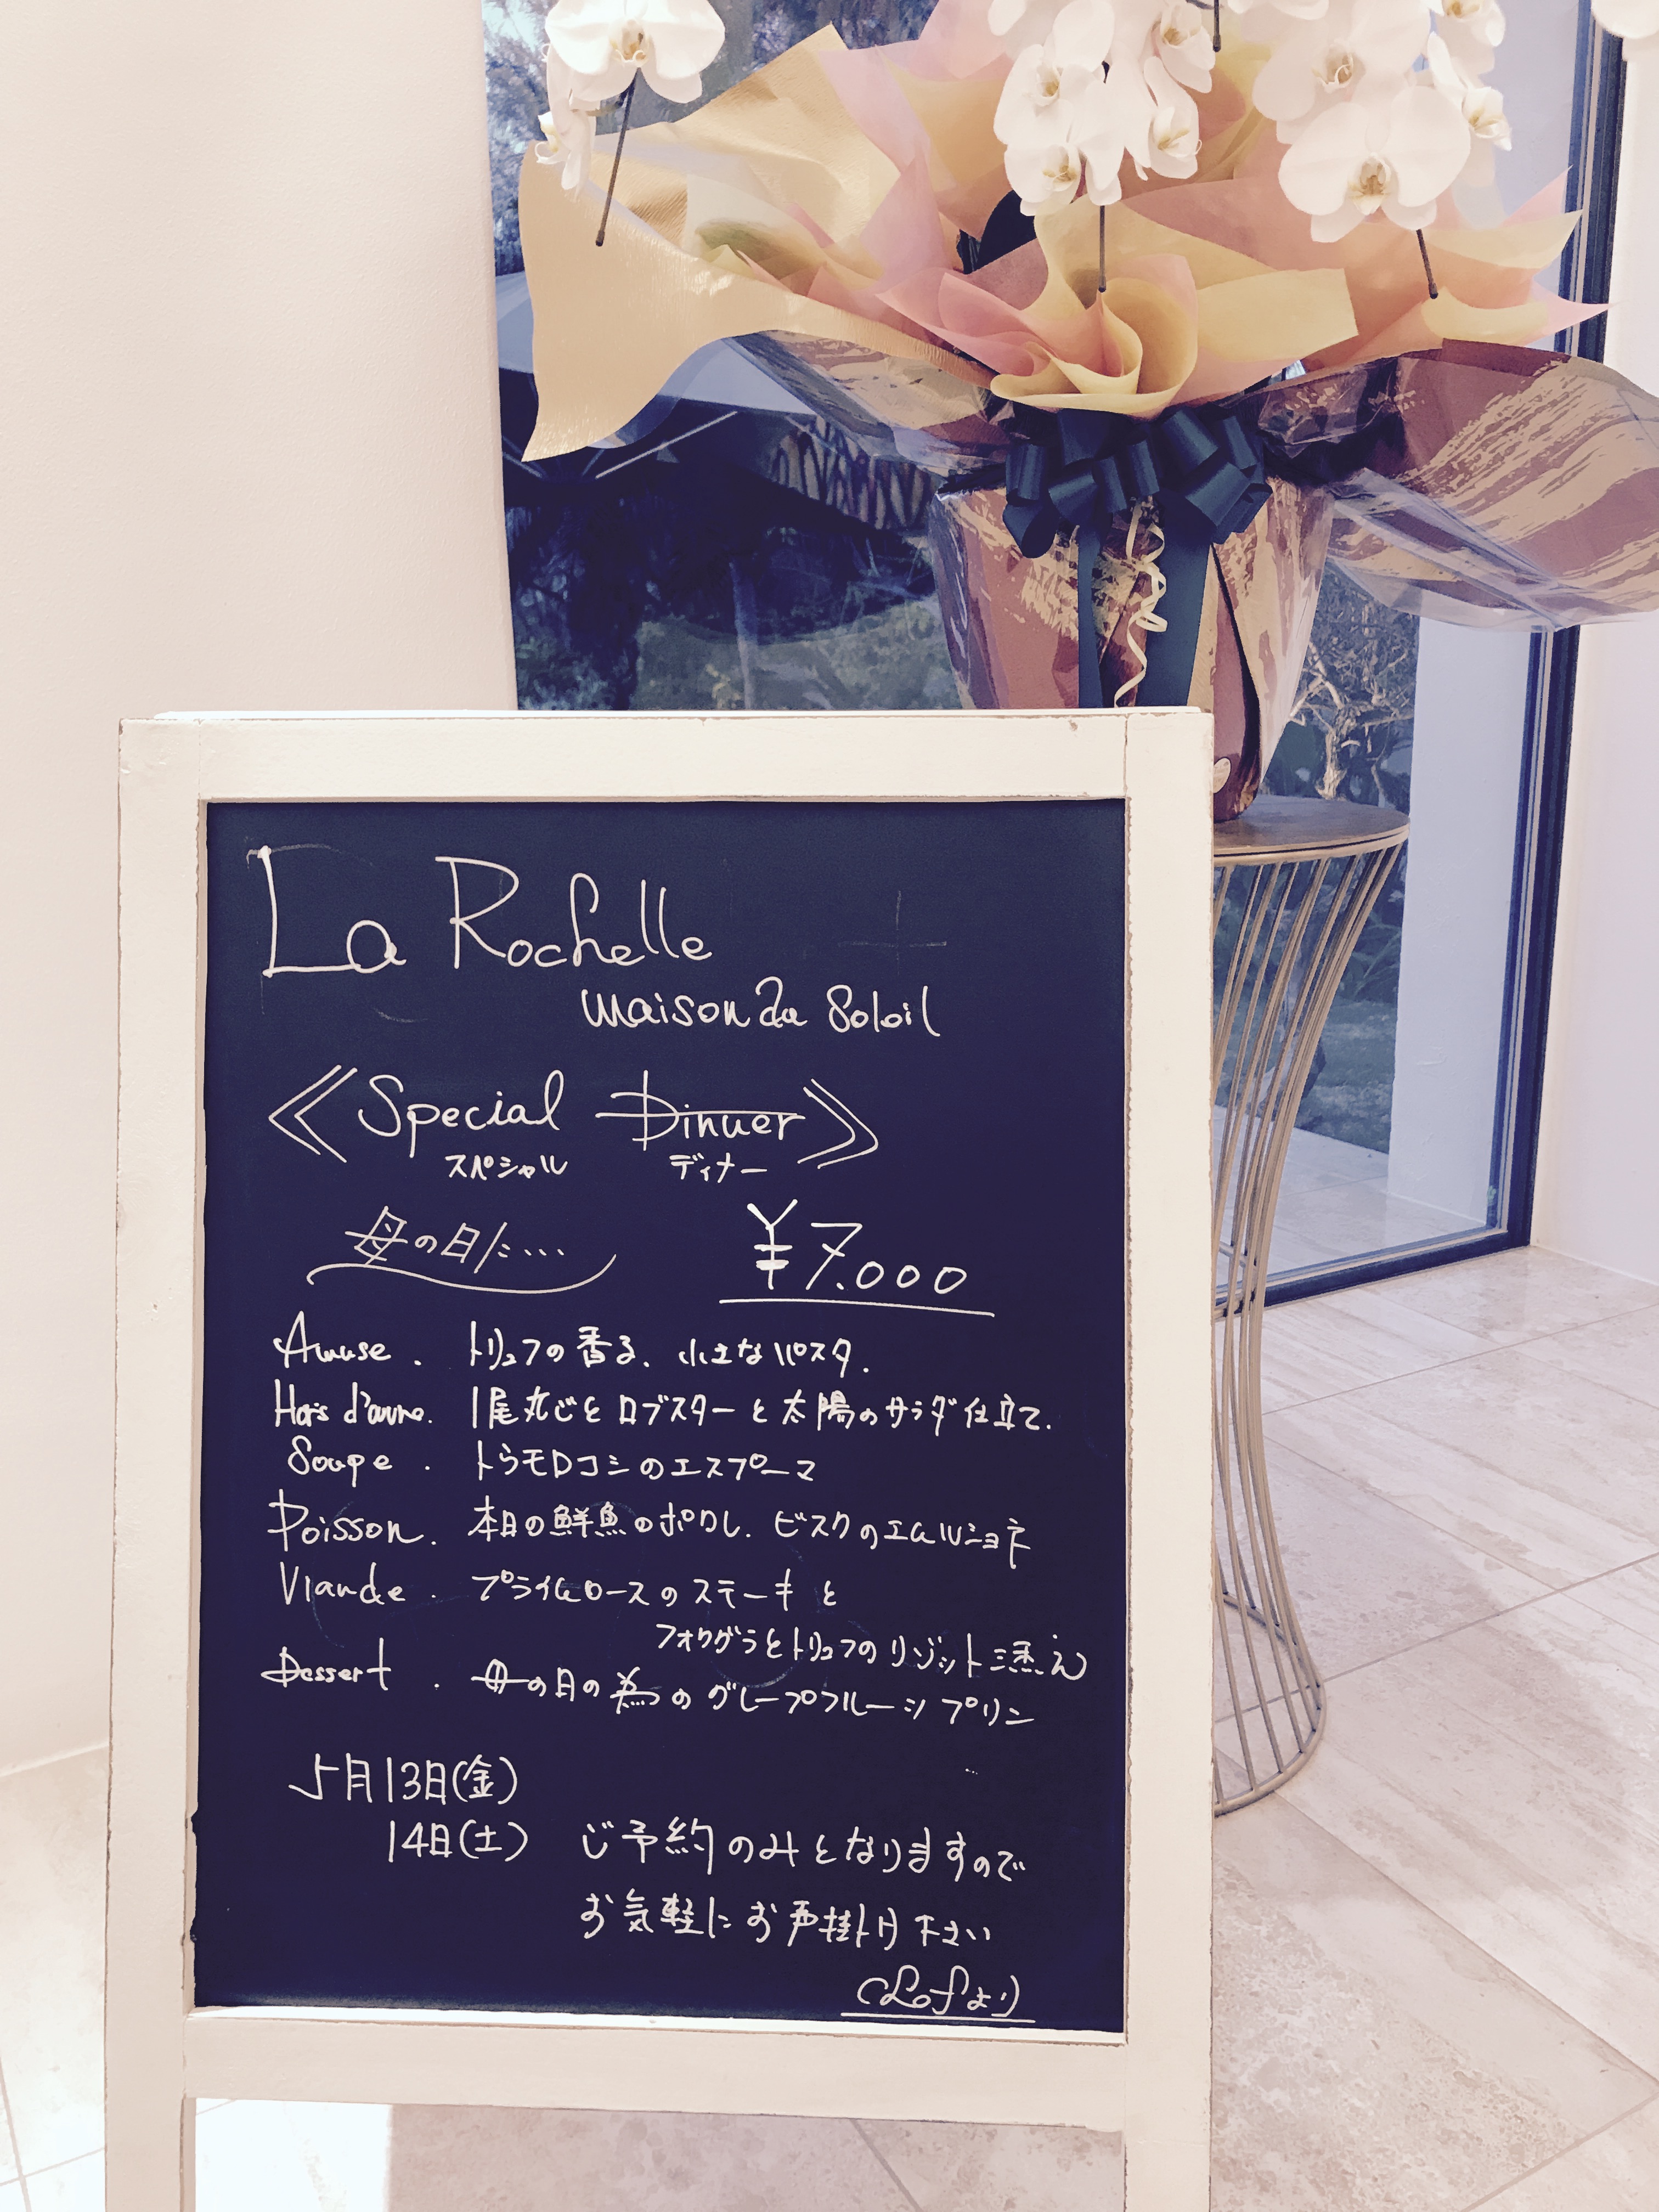 La Rochelle
maison du Soleil
≪Special Dinner≫
スペシャル ディナー
母の日に…
¥7.000
Amuse. トリュフの香る、小さなパスタ.
Hors d'œuvre. 1尾丸ごとロブスターと太陽のサラダ仕立て.
Soupe. トウモロコシのエスプーマ
Poisson. 本日の鮮魚のポワレ. ビスクのエムルショネ
Viande. プライムロースのステーキと
フォワグラとトリュフのリゾット添え
Dessert. 母の日の為のグレープフルーツプリン
5月13日(金)
14日(土) ご予約のみとなりますので
お気軽にお声掛け下さい